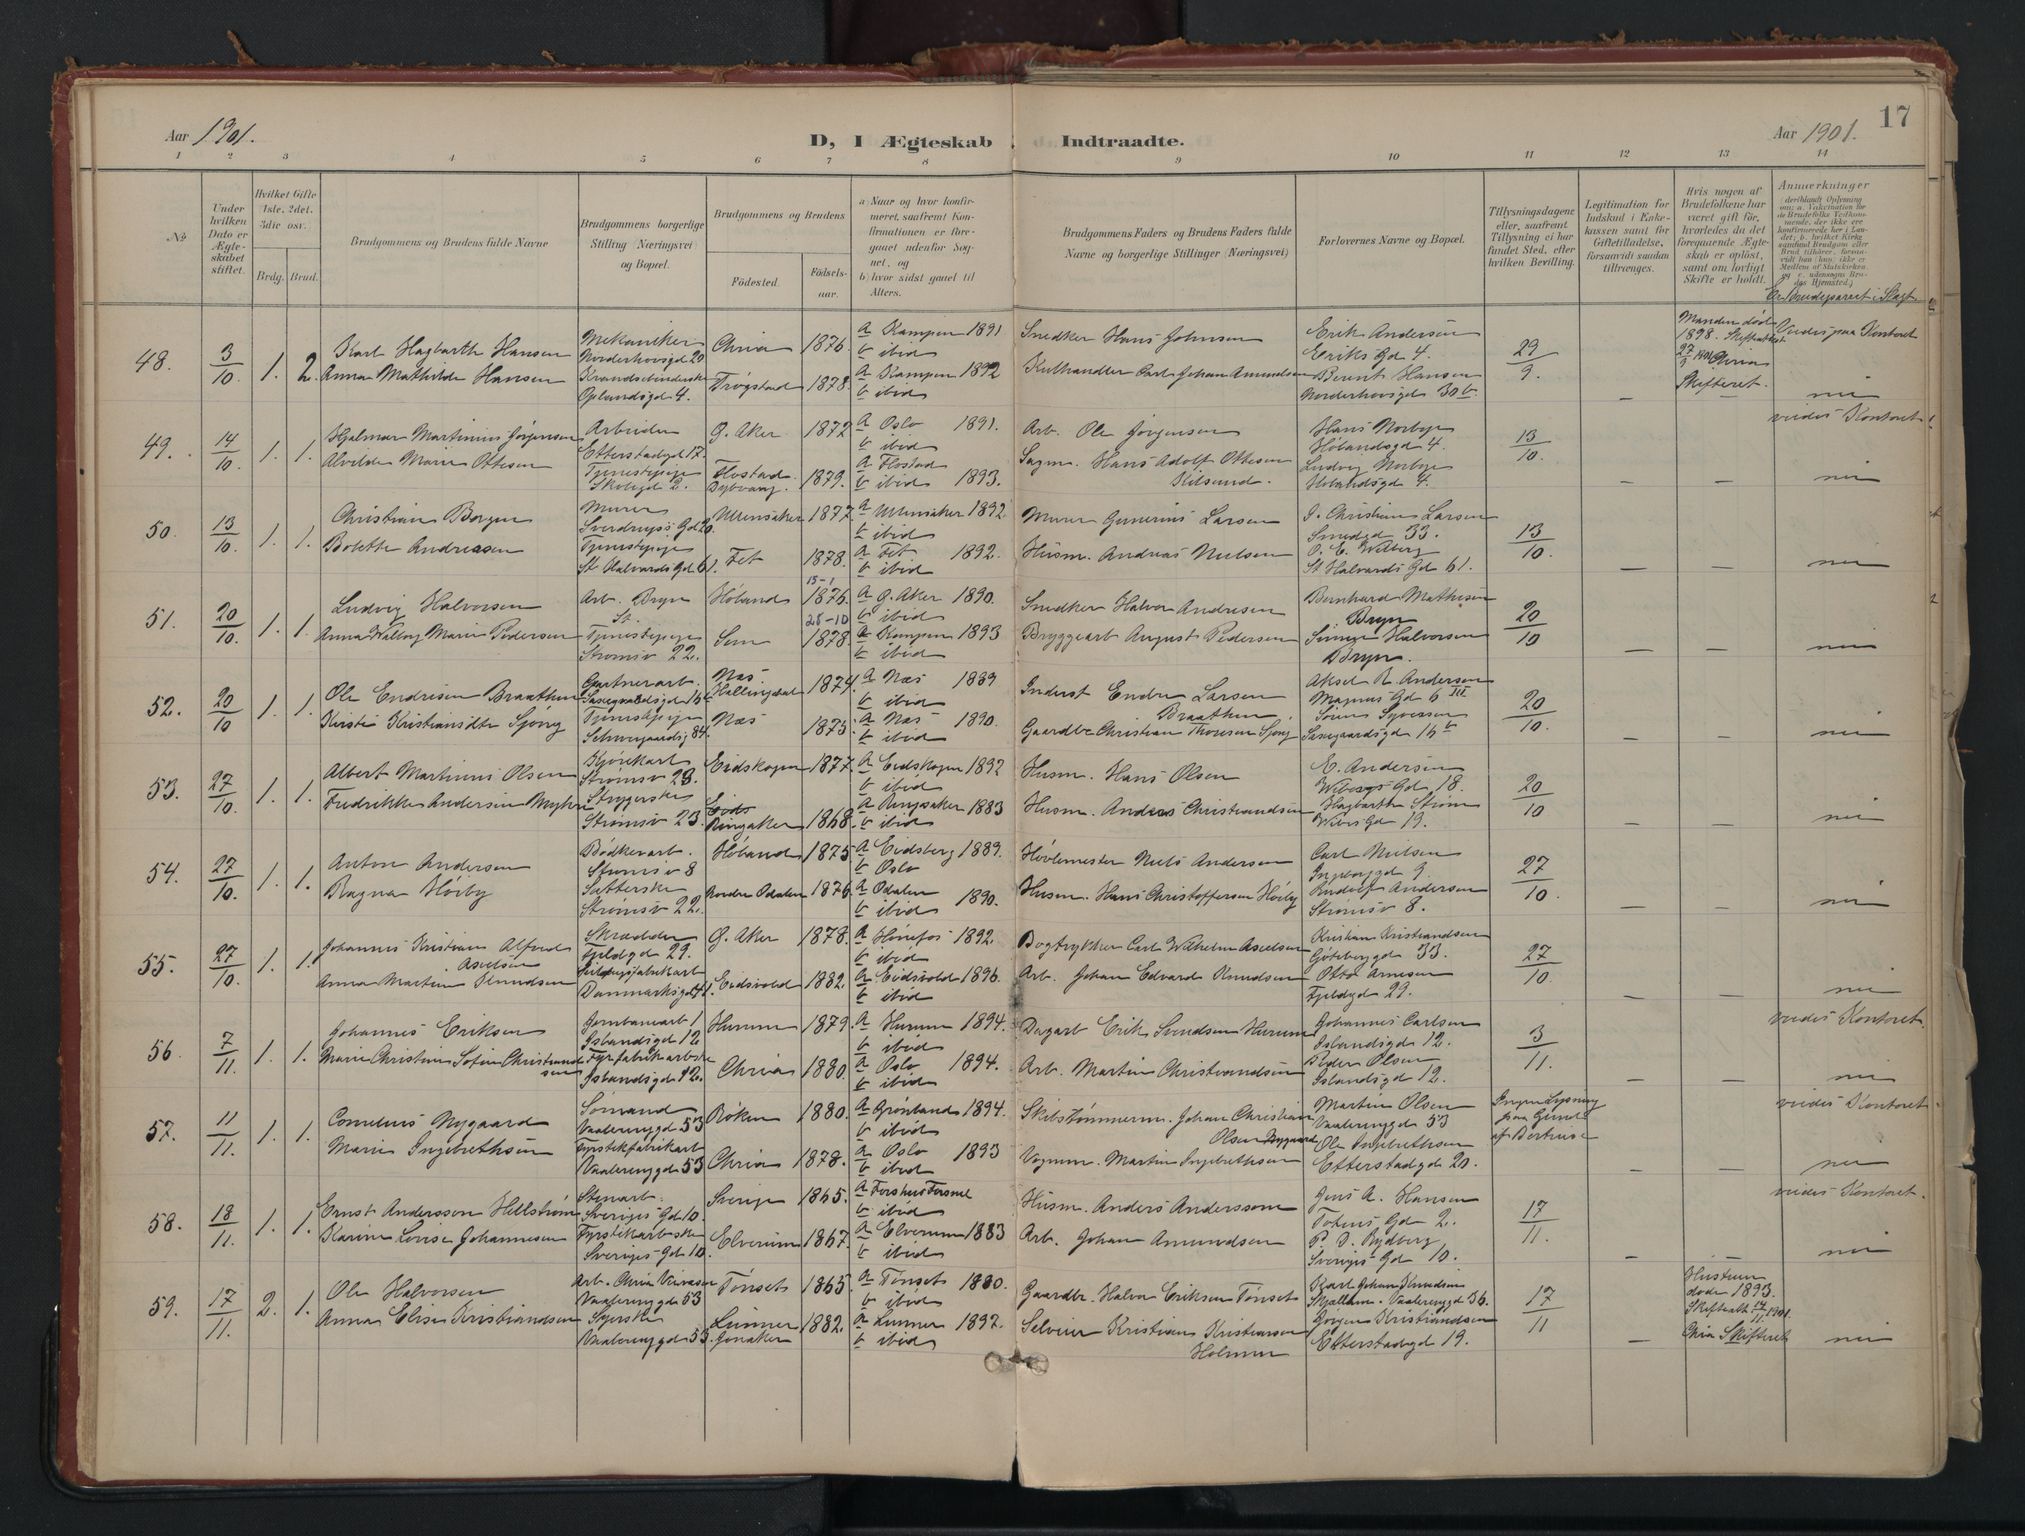 Aar 1901.
D, I Ægteskab Indtraadte.
Aar 1901.
17
1 2 3 4 5 6 7 8 9 10 11 12 13 14
No.
Under hvilken Dato er Ægteskabet stiftet.
Hvilket Gifte 1ste, 2det, 3die osv.
Brdg. Brud.
Brudgommens og Brudens fulde Navne
Brudgommens borgerlige Stilling (Næringsvei) og Bopæl.
Brudgommens og Brudens
Fødested.
Fødsels-aar.
a Naar og hvor konfirmeret, saafremt Konfirmationen er foregaaet udenfor Sognet, og
b) hvor sidst gaaet til Alters.
Brudgommens Faders og Brudens Faders fulde Navne og borgerlige Stillinger (Næringsvei)
Forlovernes Navne og Bopæl.
Tillysningsdagene eller, saafremt Tillysning ei har fundet Sted, efter hvilken Bevilling.
Legitimation for Indskud i Enkekassen samt for Giftetilladelse, forsaavidt saadan tiltrænges.
Hvis nogen af Brudefolkene har været gift før, hvorledes da det foregaaende Ægteskab er opløst, samt om lovligt Skifte er holdt.
Anmærkninger
Er Brudeparret i Slægt
48. 3/10. 1. 2.
Karl Hagbarth Hansen
Anna Mathilde Hansen
Mekaniker
Norderhovsgd 20
Oplandsgd 4.
Chria 1876.
Trøgstad 1878.
a Kampen 1891
b ibid
a Kampen 1892
b ibid
Snedker Hans Johnsen
Kulhandler Carl Johan Amundsen
Erik Andersen
Eriks Gd 4.
Berent Hansen
Norderhovsgd 30 b.
29/9.
—
Manden død
1898.
Chria
Skifteret.
—
Viedes paa Kontoret
nei
49. 14/10. 1. 1.
Hjalmar Martinius Jørgensen
Alvilde Marie Ottesen
Arbeider
Etterstadgd 17.
Tjenestepige
Skolegd 2.
Ø. Aker 1872
Flostad
Dybvaag. 1879.
a Oslo 1891.
b ibid
a Flostad
b ibid 1893.
Arb. Ole Jørgensen
Sagm. Hans Adolf Ottesen
Kilsund.
Hans Norbye
Hølandsgd 4.
Ludvig Norbye
Hølandsgd 4.
13/10.
—
—
viedes Kontoret
nei
50. 13/10. 1. 1.
Christian Borgen
Bolette Andreasen
Murer
Sverdrups Gd 20.
Tjenestepige
St Halvards Gd 61.
Ullensaker 1877.
Fet 1878.
a Ullensaker 1892.
b ibid
a Fet 1892.
b ibid
Murer Gunerius Larsen
Husm. Andreas Nielsen
J. Christian Larsen
Smedgd 33.
O. E. Wiberg
St Halvards Gd 61.
13/10.
—
—
nei
51. 20/10. 1. 1.
Ludvig Halvorsen
Anna Walborg Marie Pedersen
Arb. Bryn
St.
Tjenestepige
Strømsv 22.
Høland 15-1 1876.
Sem 28-10 1878.
a Ø. Aker 1890.
b ibid
a Kampen 1893
b ibid
Snedker Halvor Andresen
Bryggearb August Pedersen
Bernhard Mathisen
Bryn
Halvorsen
Bryn.
20/10
—
—
nei
52. 20/10 1. 1.
Ole Endresen Braathen
Kirsti Kristiansdtr Sjong
Gartnerarb.
Tjenestepige
Schweigaardsg 84.
Næs
Hallingdal 1874.
Næs 1875.
a Næs 1889
b ibid
a Næs 1890.
b ibid
Inderst Endre Larsen
Braathen
Gaardbr Christian Thoresen Sjong
Aksel R. Andersen
Magnus Gd 6 III
Søren Syversen
20/10.
—
—
nei
53. 27/10. 1. 1.
Albert Martinius Olsen
Fredrikke Andersen Myhre
Kjørekarl
Strømsv 23.
Strygerske
Strømsv 23.
Eidskogen 1877.
Ringsaker 1868.
a Eidskogen 1892
b ibid
a Ringsaker 1883
b ibid
Husm. Hans Olsen
Husm. Andreas Christiansen
E. Andersen
Wibes Gd 18.
Hagbarth Strøm
Wibes Gd 19.
20/10
—
—
nei
54. 27/10. 1. 1.
Anton Andersen
Ragna Høiby
Bødkerarb.
Strømsv 8
Strømsv 22.
Høland 1875
Nordre Odalen 1876
a Eidsberg 1889.
b Oslo
a Odalen
b ibid 1890.
Høvlemester Niels Andersen
Husm. Hans Christoffersen Høiby
Carl Nielsen
Ingeborggd 9.
Rudolf Andersen
Strømsv 8.
27/10.
—
—
nei
55. 27/10. 1. 1.
Johannes Kristian Alfred
Axelsen
Anna Martine Knudsen
Skrædder
Fjeldgd 29.
Danmarksgd 41.
Ø. Aker 1878.
Eidsvold 1882.
a Hønefos 1892.
b ibid
a Eidsvold 1896.
b ibid
Bogtrykker Carl Wilhelm Axelsen
Arb. Johan Edvard Knudsen
Kristian Kristiansen
Göteborggd 33.
Otto Arnesen
Fjeldgd 29.
27/10.
—
—
nei
56. 7/11. 1. 1.
Johannes Eriksen
Marie Christine Sofie Christiansen
Jernbanearb
Islandsgd 12.
Islandsgd 12.
Hurum 1879.
Chria 1880.
a Hurum 1894.
b ibid
a Oslo 1894.
b ibid
Dagarb Erik Svendsen Hurum
Arb. Martin Christiansen
Johannes Carlsen
Islandsgd 12.
Peder Olsen
Islandsgd 12.
3/11.
—
—
viedes Kontoret.
nei
57. 11/11. 1. 1.
Cornelius Nygaard
Marie Ingebrethsen
Sømand
Vaalerenggd 53
Fyrstikfabrikarb
Vaalerenggd 53
Røken 1880.
Chria 1878.
a Grønland 1894.
b ibid
a Oslo 1893
b ibid
Skibstømmerm. Johan Christian
Olsen Nygaard
Vognm. Martin Ingebrethsen
Martin Olsen
Vaalerenggd 53
Ole Ingebrethsen
Etterstadgd 20.
Ingen Lysning
paa Grund
af
—
—
viedes Kontoret
nei
58. 18/11. 1. 1.
Ernst Andersson Hellstrøm
Karin Lovise Johannesen
Stenarb.
Sveriges Gd 10.
Fyrstikarbske
Sveriges Gd 10.
Sverige 1865.
Elverum 1867.
a
b ibid
a Elverum 1883
b ibid
Husm. Anders Anderssom
Arb. Johan Amundsen
Jens A. Hansen
Totens Gd 2.
P. J. Rydberg
Sveriges Gd 10.
17/11.
—
viedes Kontoret.
nei
59. 17/11. 2. 1.
Ole Halvorsen
Anna Elise Kristiansen
Arb. Chria
Vaalerenggd 53
Syerske
Vaalerenggd 53.
Tønset 1865.
Lunner
Granaker 1882.
a Tønset 1880.
b ibid
a Lunner 1897.
b ibid
Gaardbr. Halvor Eriksen Tønset
Selveier Kristian Kristiansen
Holmen
Karl Johan Knudsen
Vaalerenggd 36.
Jørgen Kristiansen
Etterstadgd 19.
17/11
—
Hustruen
døde 1893.
Skifteatt 14/11 1901.
Chria Skifteret
nei